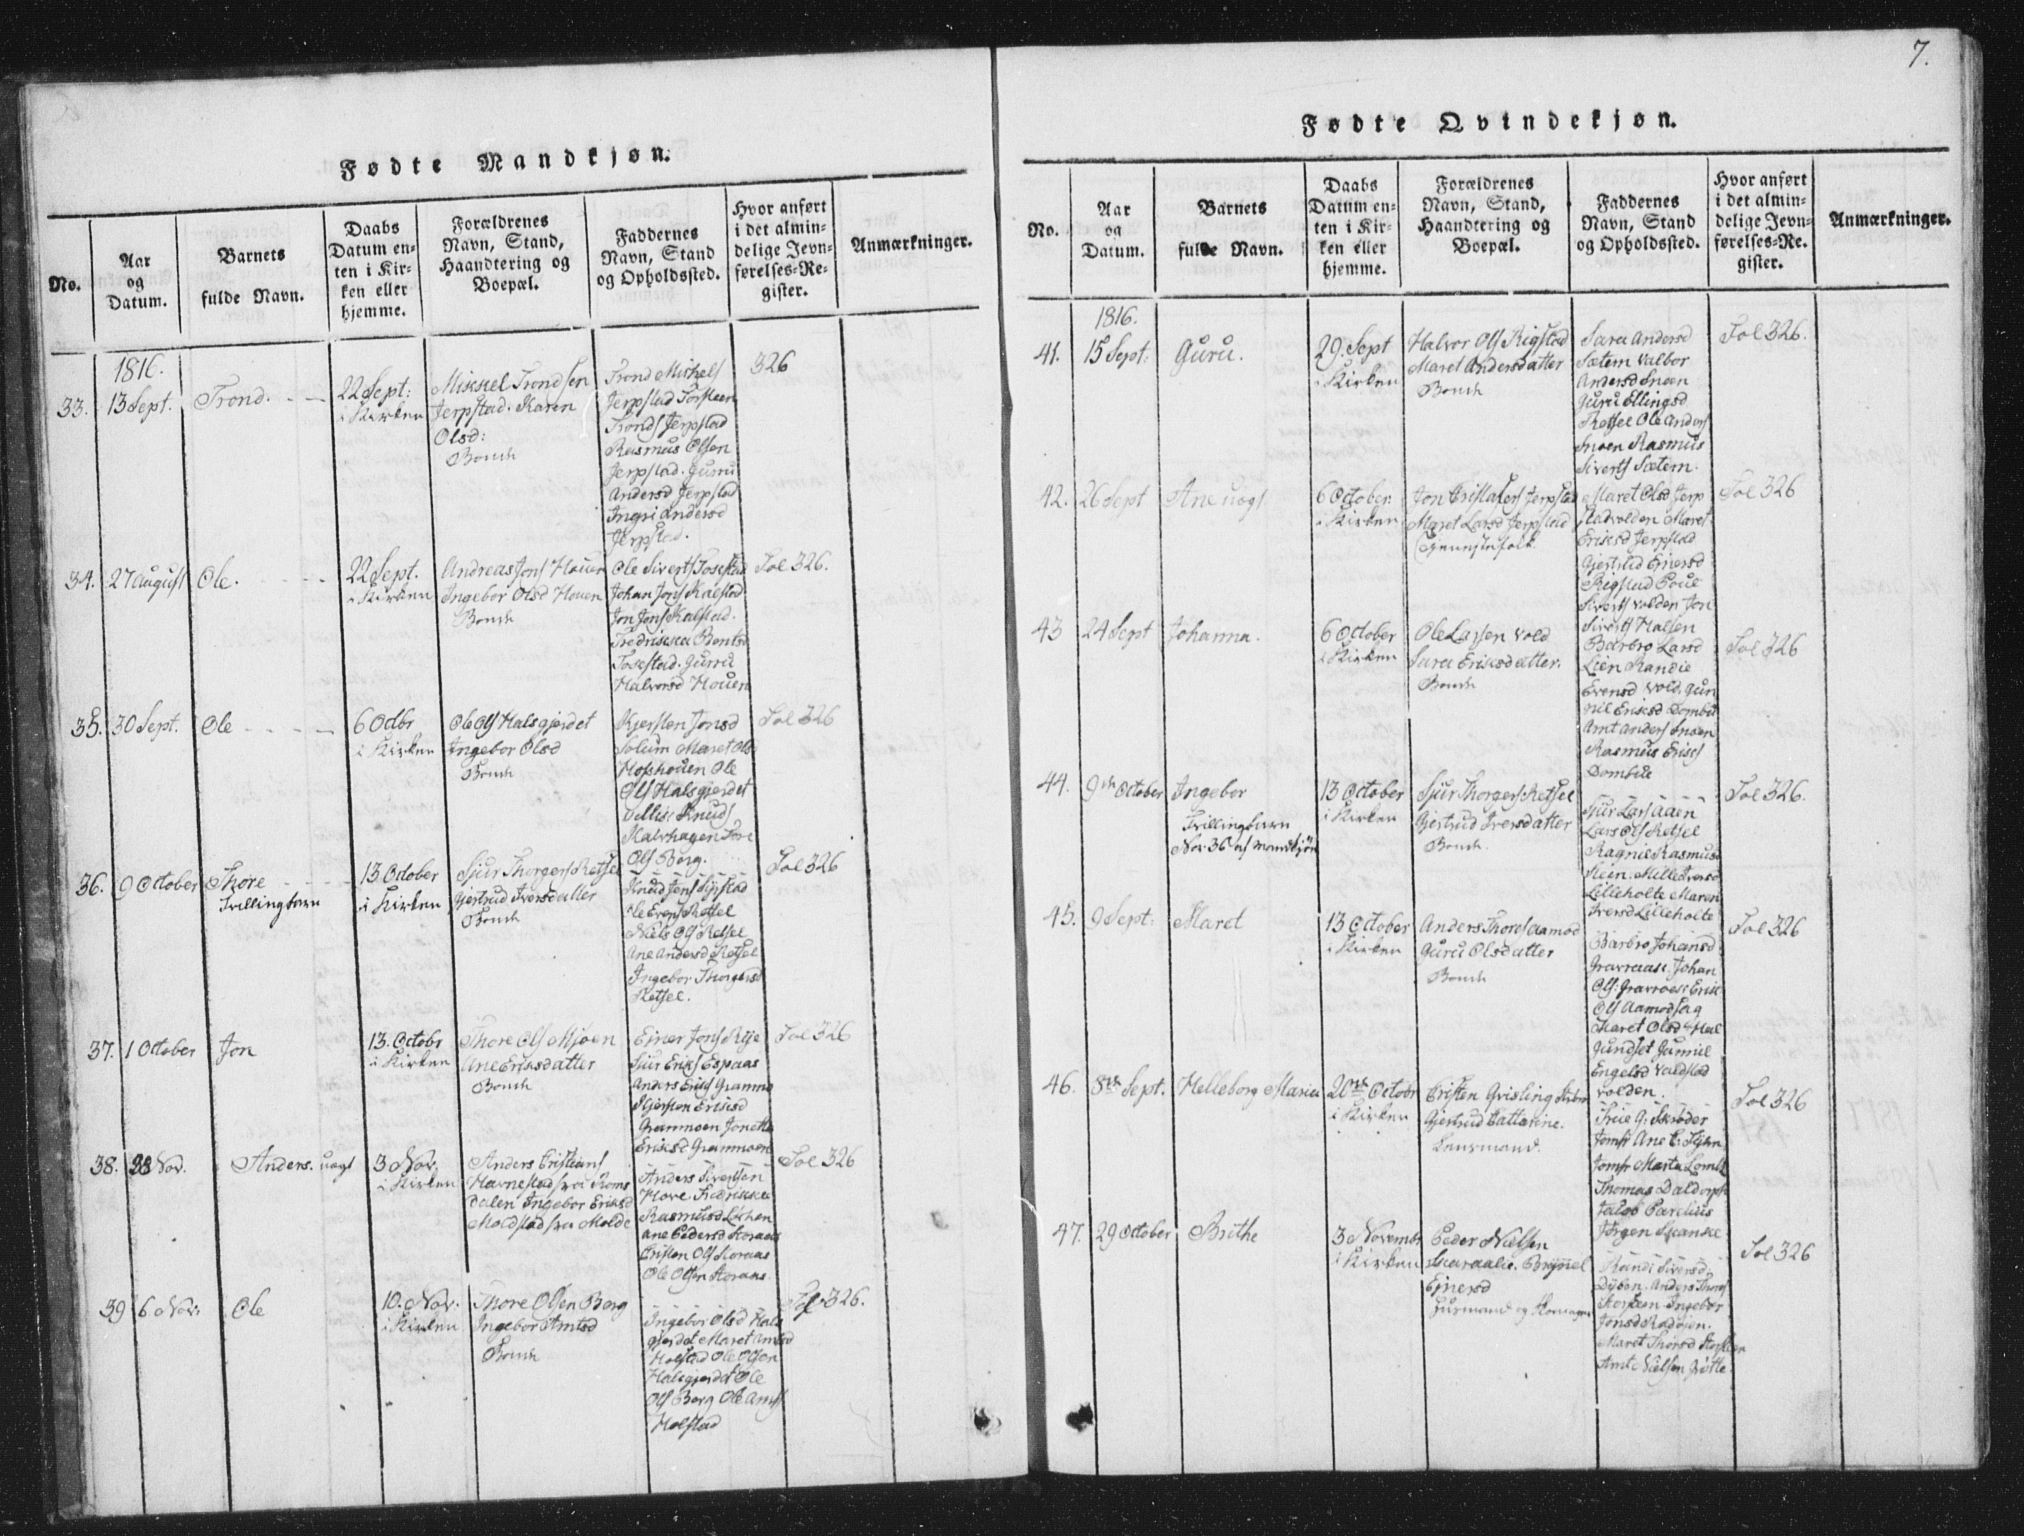 7.
Fødte Mandkjøn.
No.
Aar
og
Datum.
Barnets
fulde Navn.
Daabs
Datum en-
ten i Kir-
ken eller
hjemme.
Forældrenes
Navn, Stand,
Haandtering og
Boepæl.
Faddernes
Navn, Stand
og Opholdssted.
Hvor anført
i det almin-
delige Jevn-
førelses-Re-
gister.
Anmærkninger.
1816.
33.
13 Sept.
Trond.
22 Sept:
i Kirken
Mikkel Trondsen
Jerpstad. Karen
Olsd:
Bonde
Trond Michels
Jerpstad Torsteen
Tronds Jerpstad
Rasmus Olsen
Jerpstad. Guru
Andersd Jerpstad
Ingri Andersd
Jerpstad.
326
34.
27 August
Ole.
22 Sept.
i Kirken
Andreas Jons Houen
Ingebor Olsd Houen
Bonde
Ole Siverts Tosestad
Johan Jons Kalstad
Jon Jons Kalstad.
Fredrikka Bentsd
Tosestad. Gurru
Halvorsd Houen
Fol 326.
35.
30 Sept.
Ole
6 Octbr
i Kirken
Ole Ols Halsgjerdet
Ingebor Olsd
Bonde
Kjersten Jonsd
Solum Maret Ols
Hofshouen Ole
Ols Halsgjerdet
Knuds
Halvhagen Tore
Ols Borg.
Fol 326
36.
9 October
Thore
Tvillingbarn
13 October
i Kirken
Sjur Thorgers Retsel
Gjertrud Iversdatter
Bonde
Knud Jens
Ole Evens Retsel
Niels Ols Retsel
Ane Andersd Retsel
Ingebor Thorgersd
Retsel.
Fol 326
37.
1 October
Jon
13. Octobr
i Kirken
Thore Ols Mjoen
Ane Eriksdatter
Bonde
Einer Jons Rise
Sjur Eriks Espaas
Anders Eriks Gramme
Kjersten Eriksd
Grammoen Jonetta
Eriksd Grammoen
Fol 326
38.
Nov.
Anders. uægt
3 Nov.
i Kirken
Anders Cristians
Havnestad fra Roms
dalen Ingebor Eriksd
Moldstad fra Molde
Anders Sivertsen
Hove Fredrikke
Rasmusd
Ane Pedersd Koraas
Cristen Ols Koraas
Ole Olsen Koraas.
Fol 326
39
6 Nov:
Ole
10. Nov:
i Kirken
Thore Olsen Borg
Ingebor Amtsd
Bonde
Ingebor Olsd Hals
gjerdet Maret Amtsd
Holstad Ole Olsen
Halsgjerdet Ole
Ols Borg Ole Amts
Holstad
Fol 326.
Fødte Qvindekjøn.
No.
Aar
og
Datum.
Barnets
fulde Navn.
Daabs
Datum en-
ten i Kir-
ken eller
hjemme.
Forældrenes
Navn, Stand,
Haandtering og
Boepæl.
Faddernes
Navn, Stand
og Opholdssted.
Hvor anført
i det almin-
delige Jevn-
førelses-Re-
gister.
Anmærkninger.
1816.
41.
15 Sept:
Guru.
29. Sept
i Kirken
Halvor Ols Rigstad
Maret Andersdatter
Bonde
Sara Andersd
Sætem Valbor
Andersd Snoen
Guru Ellingsd
Retsel Ole Anders
Snoen Rasmus
Siverts Sætem.
Fol 326.
42.
26 Sept
Ane uægt
6 October
i Kirken
Jon Cristafers Jerpstad
Maret Larsd Jerpstad
Tjenestefolk
Maret Olsd Jerp
stadvolden Maret
Eriksd Jerpstad
Gjertrud Ejnersd
Rigstad Poul
Siverts Volden Jon
Siverts Halsen
Fol 326
43
24 Sept
Johanna.
6 October
i Kirken
Ole Larsen Vold
Sara Eriksdatter.
Bonde
Barbro Larsd
Lien Randie
Evensd Vold. Gun
nil Eriksd Dombu
Amt Anders Snoen
Rasmus Eriks
Dombue
Fol 326
44.
9de October
Ingebor
Tvillingbarn
No. 36 af Mandkjøn
13 October
i Kirken
Sjur Thorgers Retsel
Gjertrud Iversdatter
Bonde.
Sjur Lars Aaen
Lars Ols Retsel
Ragnil Rasmusd
Steen. Mille Iversd
Lilleholte Maren
Iversd Lilleholte
Fol 326.
45.
9 Sept:
Maret
13 October
i Kirken
Anders Thores Aamod
Guru Olsdatter
Bonde
Barbro Johansd
Gravraas. Johan
Ols: Gravroes Erik
Ols Aamodsag
Maret Olsd
Gundset Gunnil
Engelsd
volden.
Fol 326
46.
8de Sept.
Helleborg Maria
20de Octobr
i Kirken
Cristen Grisling
Gjertrud Cattarine.
Lensmand.
Skrøder
Jomfr Ane C:
Jomfr Marta
Thomas Daldorph
Jakob Parelius
Jørgen Skanske
Fol 326
47.
29 October
Brithe
3 Novembr
i Kirken
Peder Nielsen
Brynnel
Ejnersd
Randi Siversd
Anders Thores
Ingebor
Jonsd
Maret Thorsd
Amt Nielsen
Fol 326